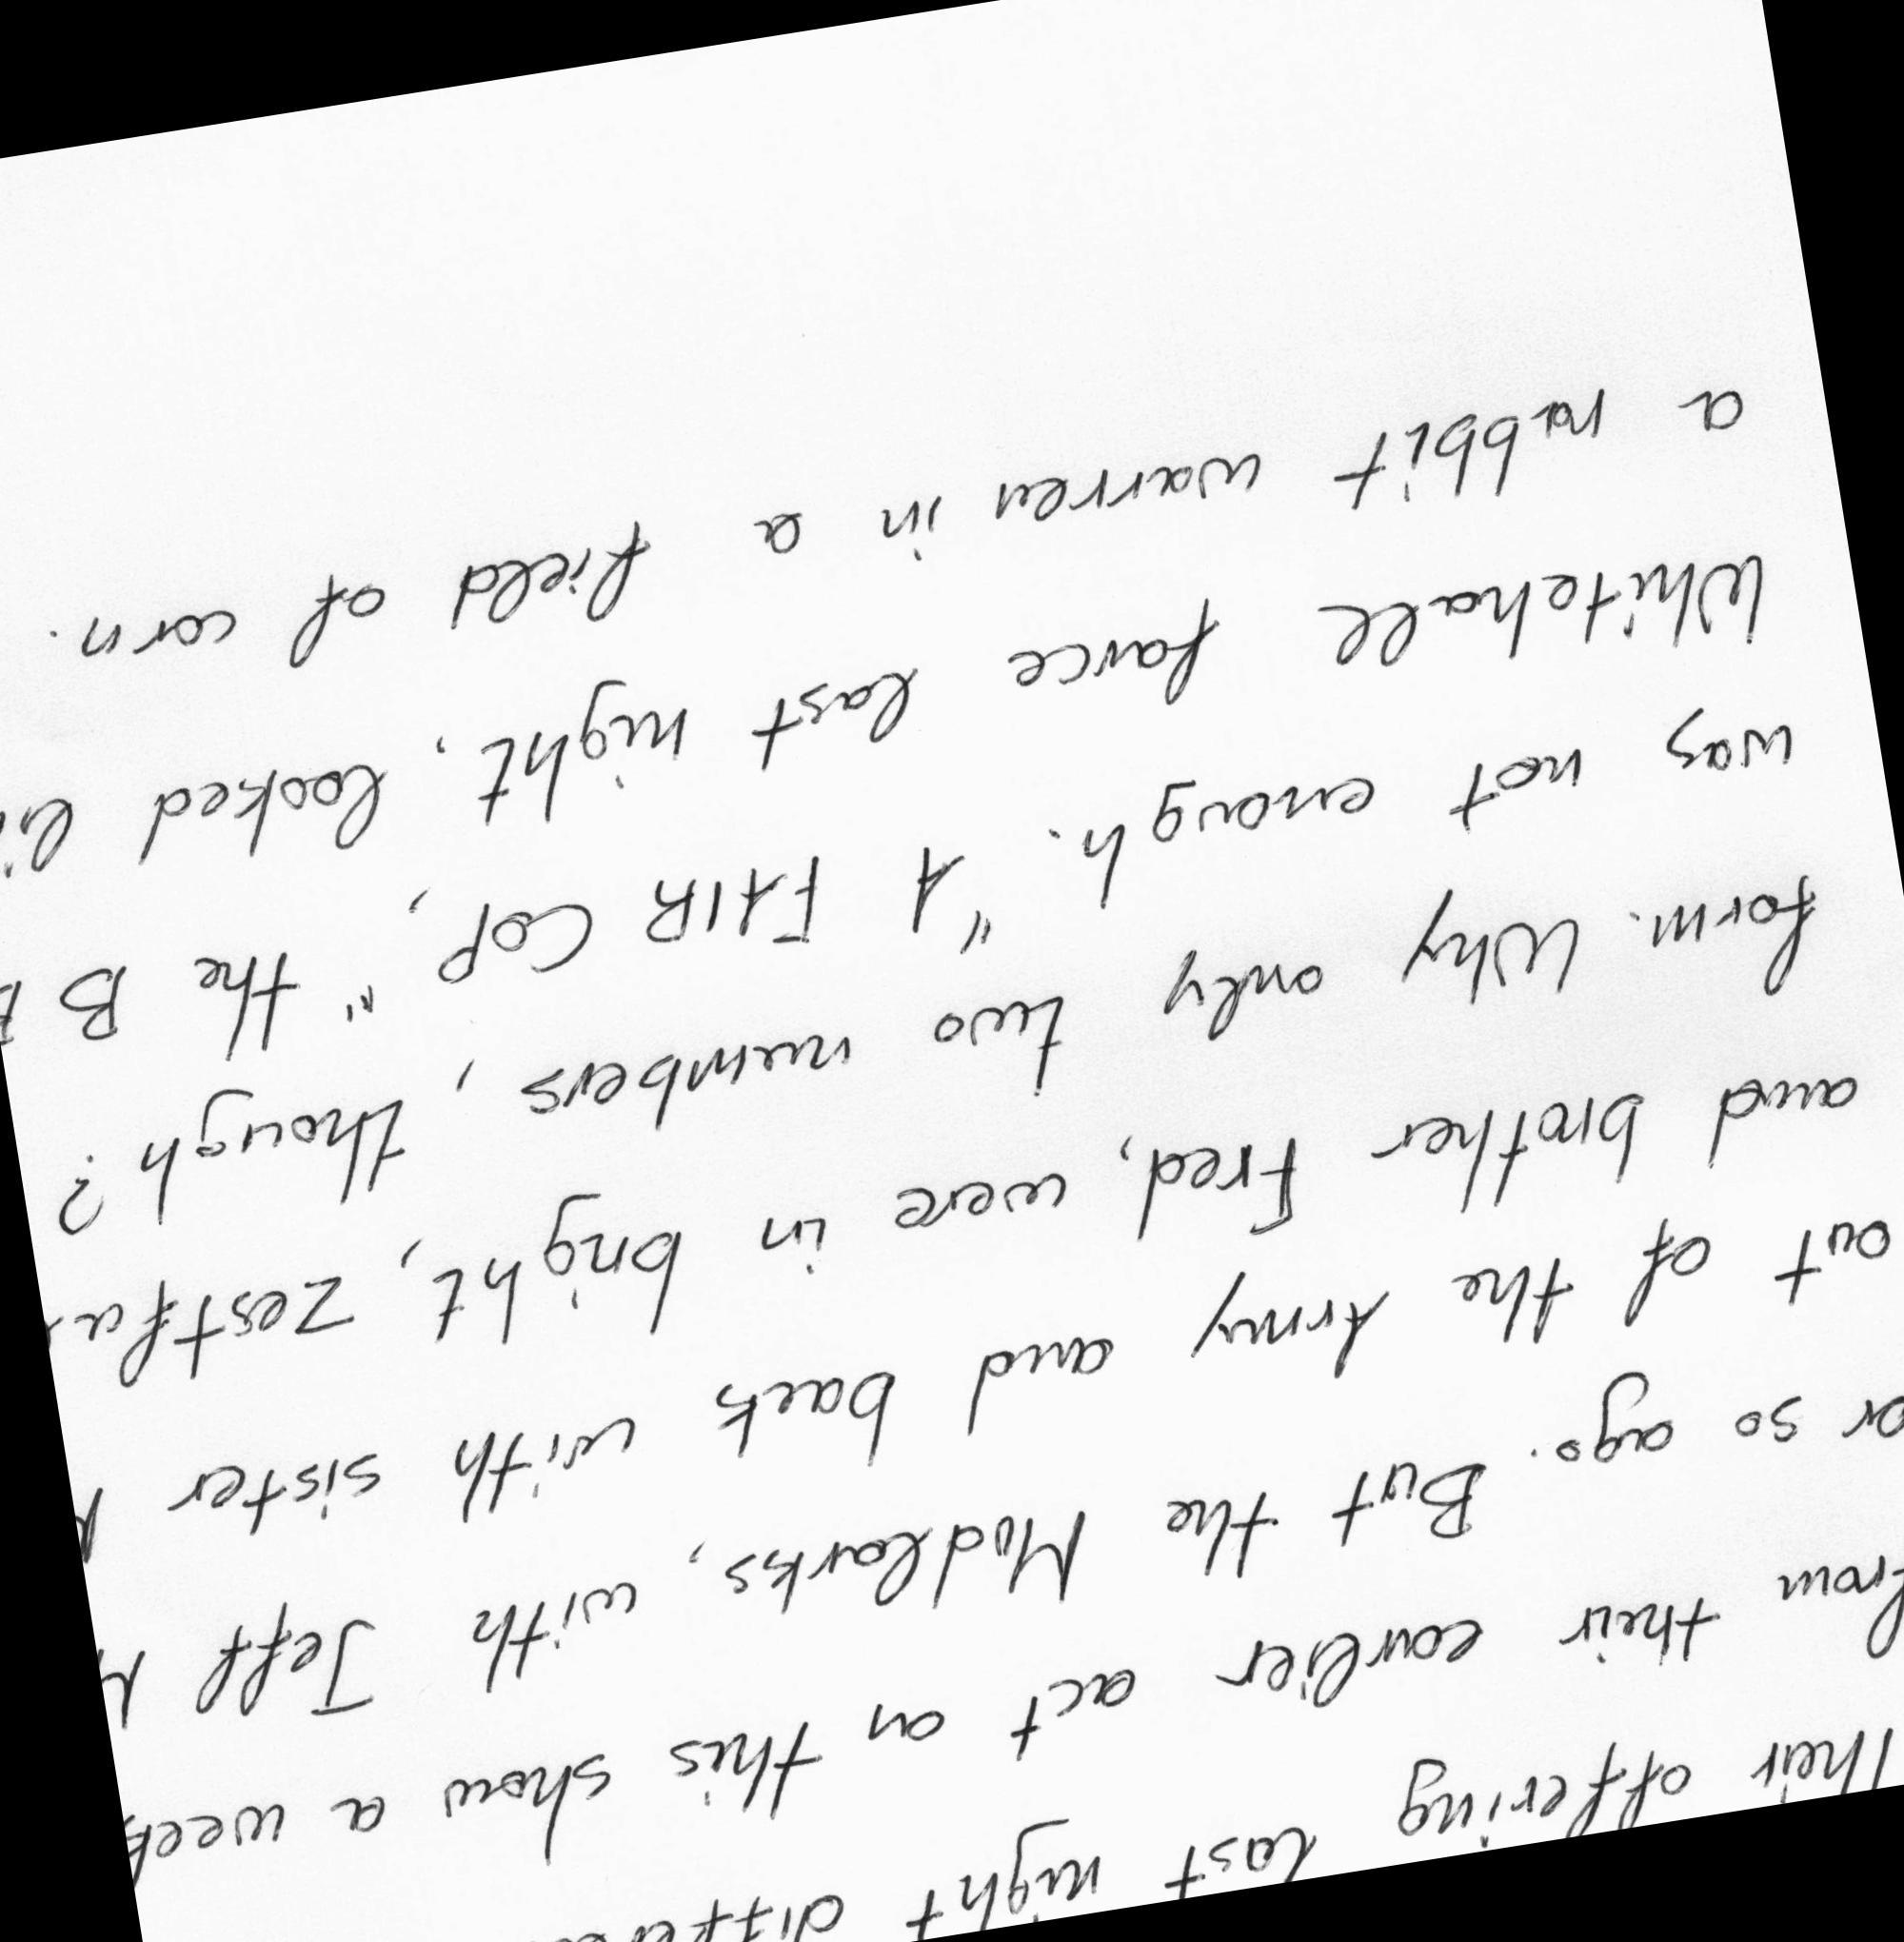 Their offering last night
from their earlier act on this show a week
or so ago. But the Mudlarks, with Jeff
out of the Army and back with sister
and brother Fred, were in bright,
form. Why only two numbers, though?
was not enough. "A FAIR COP," the B
Whitehall farce last night, looked
a rabbit warren in a field of corn.